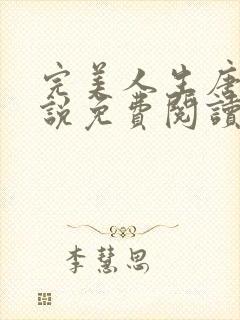 完美人生唐
說免費閱讀
李慧思